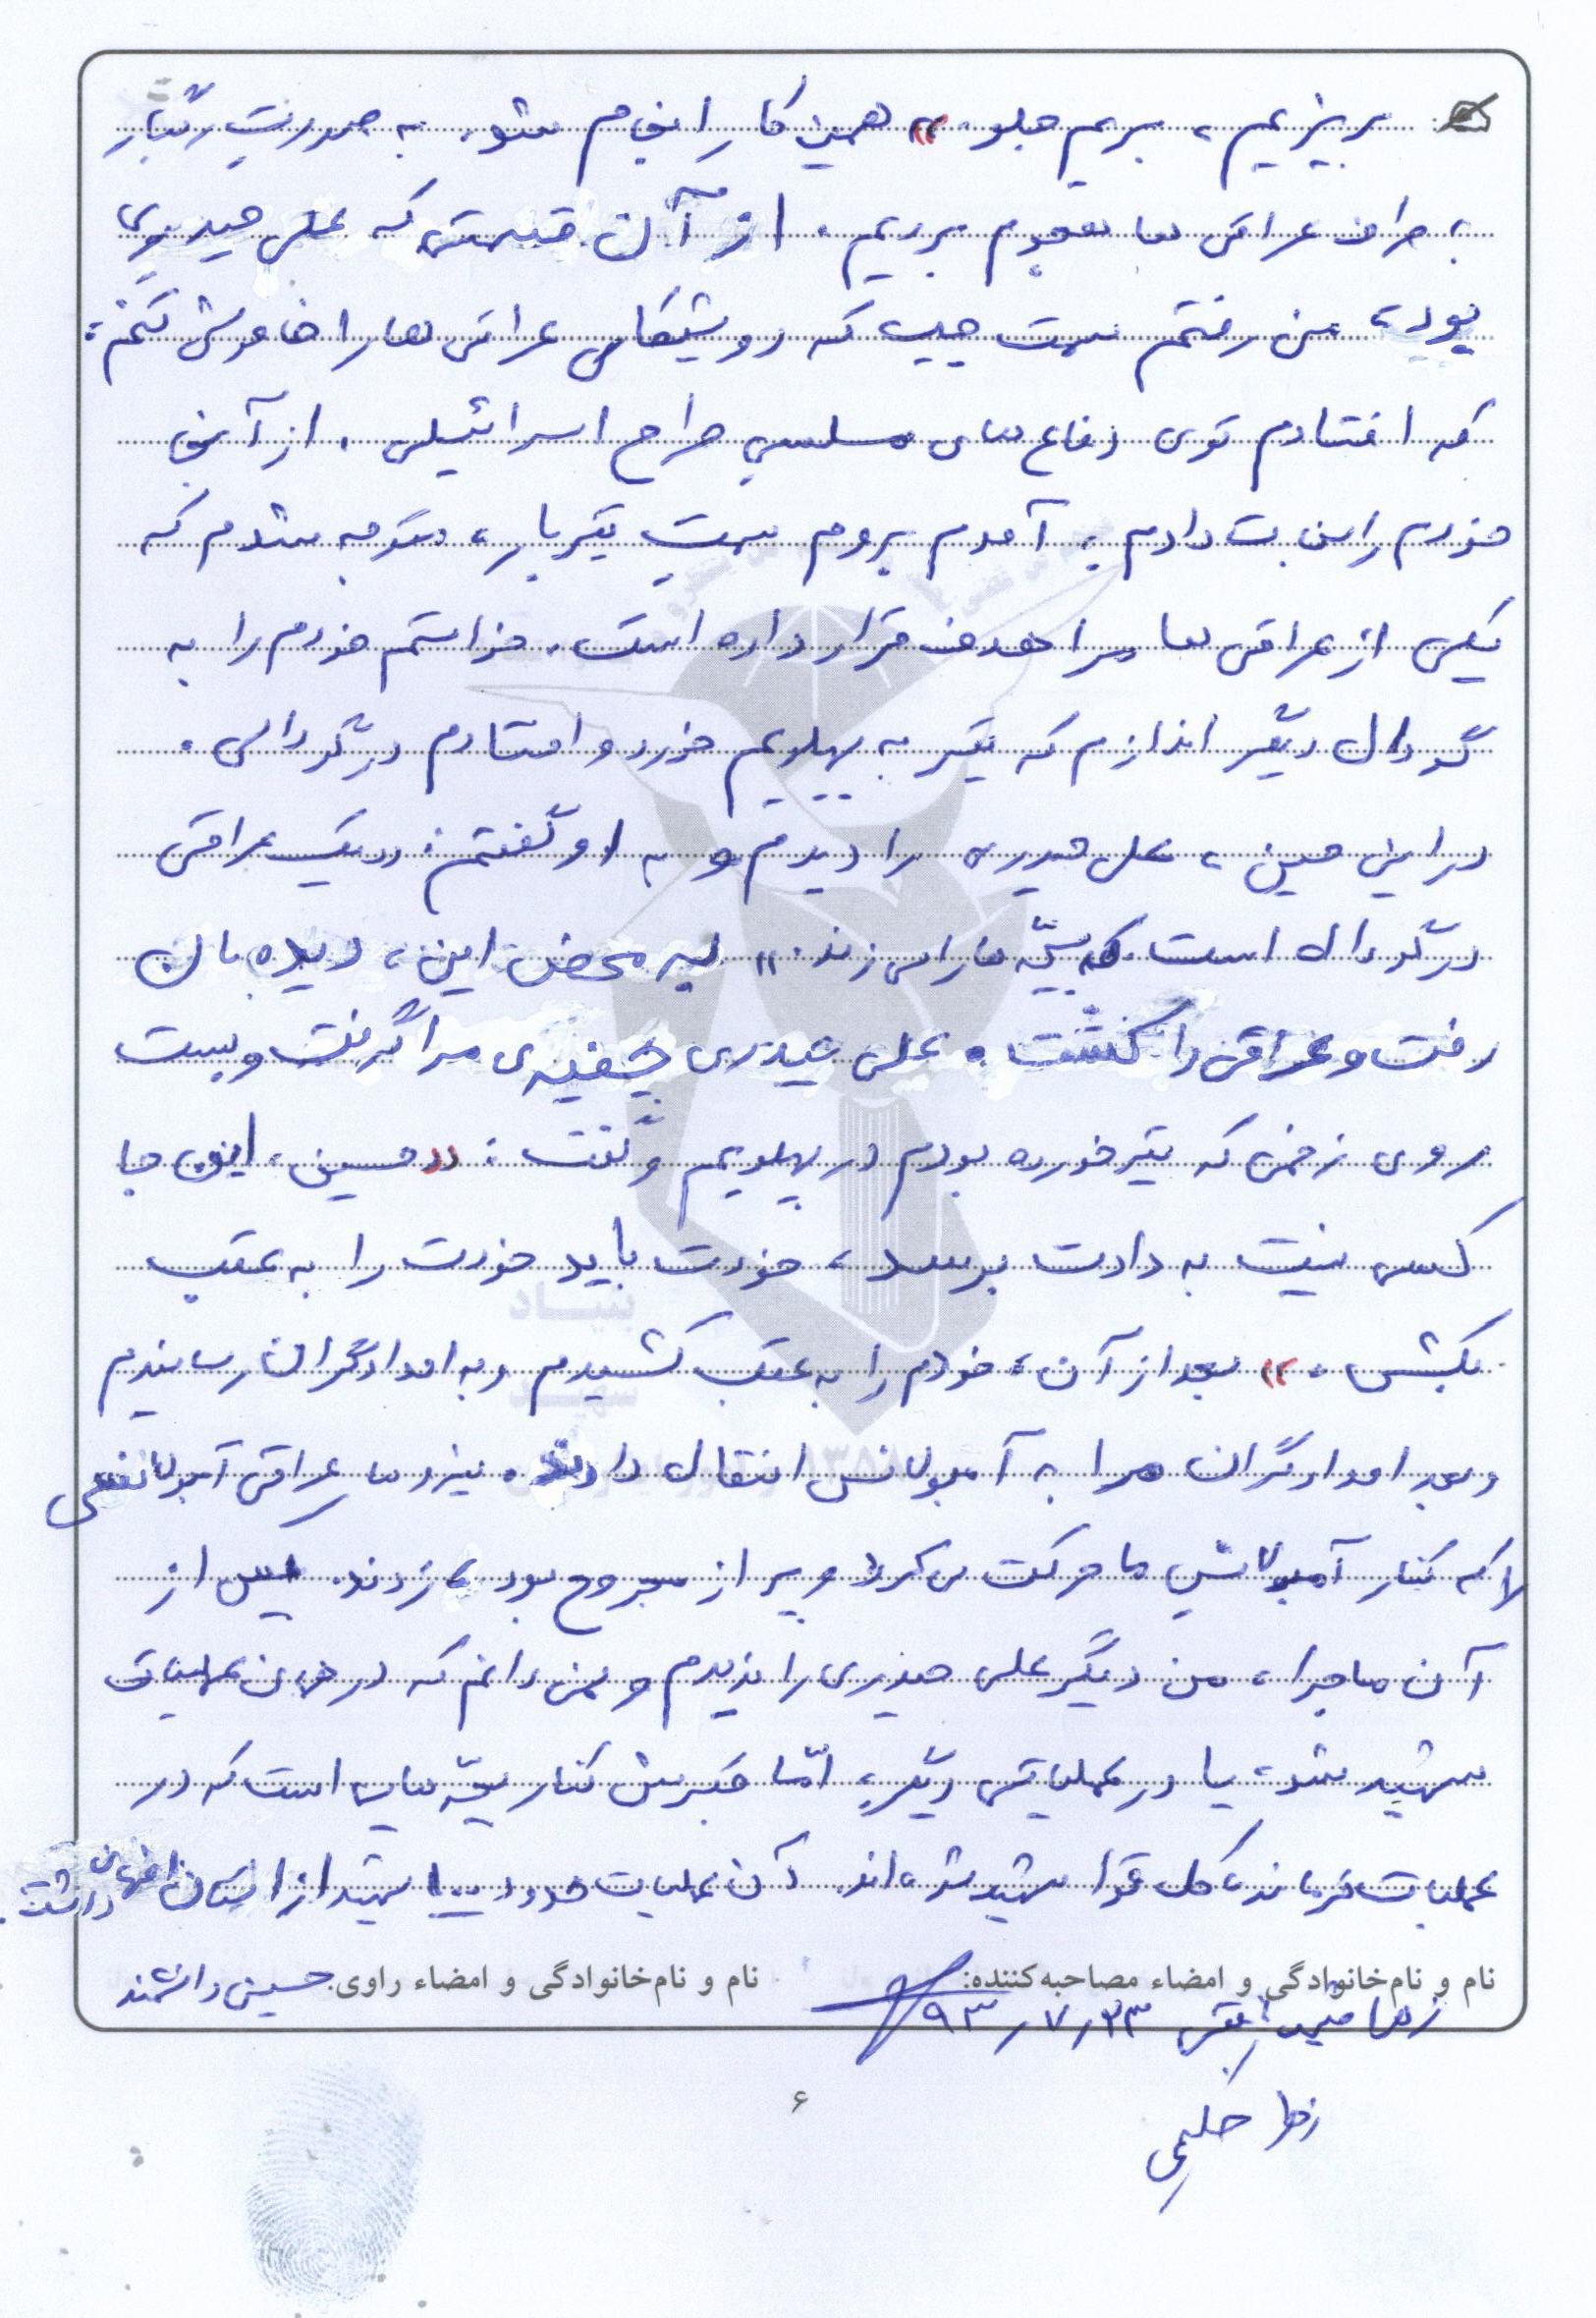 بریزیم، بریم جلو.» همین کار انجام شد. به صورت رگبار
به طرف عراقی ها هجوم بردیم. از آن قسمتی که علی حیدری
بود، من رفتم سمت چپ که دوشیکای عراقی ها را خاموش کنم؛
که افتادم توی دفاع های مسلسی طراح اسرائیلی. از آنجا
خودم را نجات دادم و آمدم بروم سمت تیربار، متوجه شدم که
یکی از عراقی ها مرا هدف قرار داده است. خواستم خودم را به
گودال دیگر اندازم که تیر به پهلویم خورد و افتادم در گودالی.
در این حین، علی حیدری را دیدم و به او گفتم: «یک عراقی
در گودال است که بچّه ها را می زند.» به محض این، دیده بان
رفت و عراقی را کشت. علی حیدری چفیه ی مرا گرفت و بست
روی زخمی که تیر خورده بودم در پهلویم و گفت: «حسین، این جا
کسی نیست به دادت برسد، خودت باید خودت را به عقب
بکشی.» بعد از آن، خودم را به عقب کشیدم و به امدادگران رساندم
و بعد امدادگران مرا به آمبولانس انتقال دادند. نیروهای عراقی آمبولانسی
که کنار آمبولانس ما حرکت می کرد و پر از مجروح بود، زدند. پس از
آن ماجرا، من دیگر علی حیدری را ندیدم و نمی دانم که در همان عملیات
شهید شد، یا در عملیاتی دیگر، امّا قبرش کنار بچّه هایی است که در
عملیات فرمانده کل قوا شهید شده اند. آن عملیات حدود شهید از استان اصفهان داشت.
نام و نام خانوادگی و امضاء مصاحبه کننده: نام و نام خانوادگی و امضاء راوی: حسین دانشمند
زهرا ۹۳٫۷٫۲۳
زهرا حکیمی
۶
بنیاد
شهید